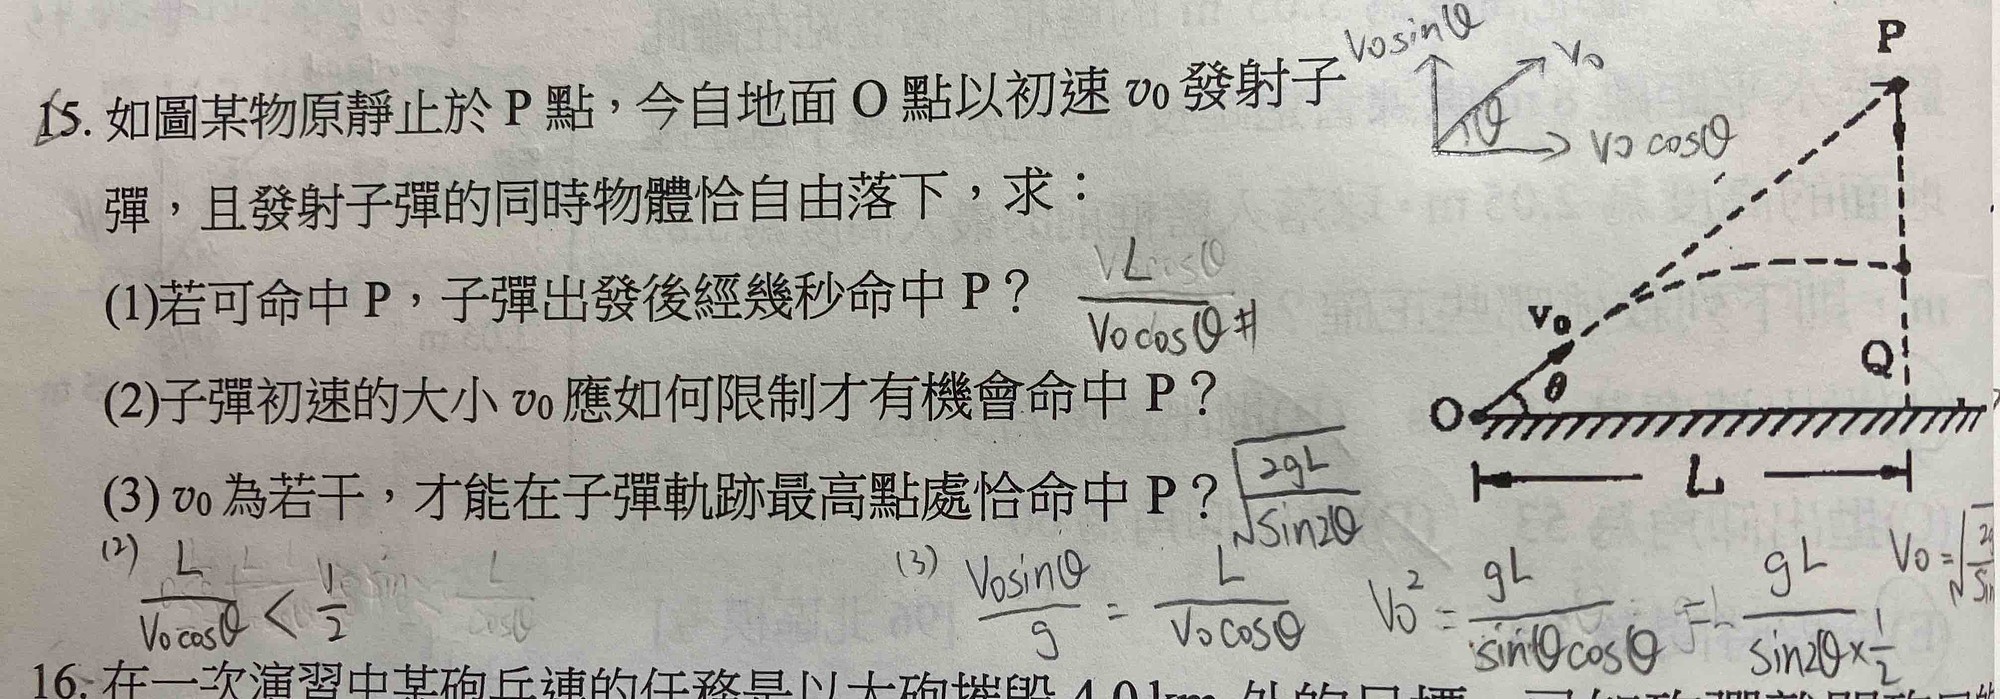 15. 如圖某物原靜止於 P 點，今自地面 O 點以初速 v₀ 發射子
彈，且發射子彈的同時物體恰自由落下，求：
(1)若可命中 P，子彈出發後經幾秒命中 P？ L/V₀cosθ #
(2)子彈初速的大小 v₀ 應如何限制才有機會命中 P？
(3) v₀ 為若干，才能在子彈軌跡最高點處恰命中 P？ √(2gL/sin2θ)
V₀sinθ
V₀
θ
V₀cosθ
P
v₀
θ
Q
O
L
(2) L/V₀cosθ < 1/2
(3) V₀sinθ/g = L/V₀cosθ
V₀² = gL/sinθcosθ = gL/sin2θ×1/2
V₀ = √
16. 在一次演習中某砲兵連的任務是以大砲摧毀 4.0 km 外的目標，